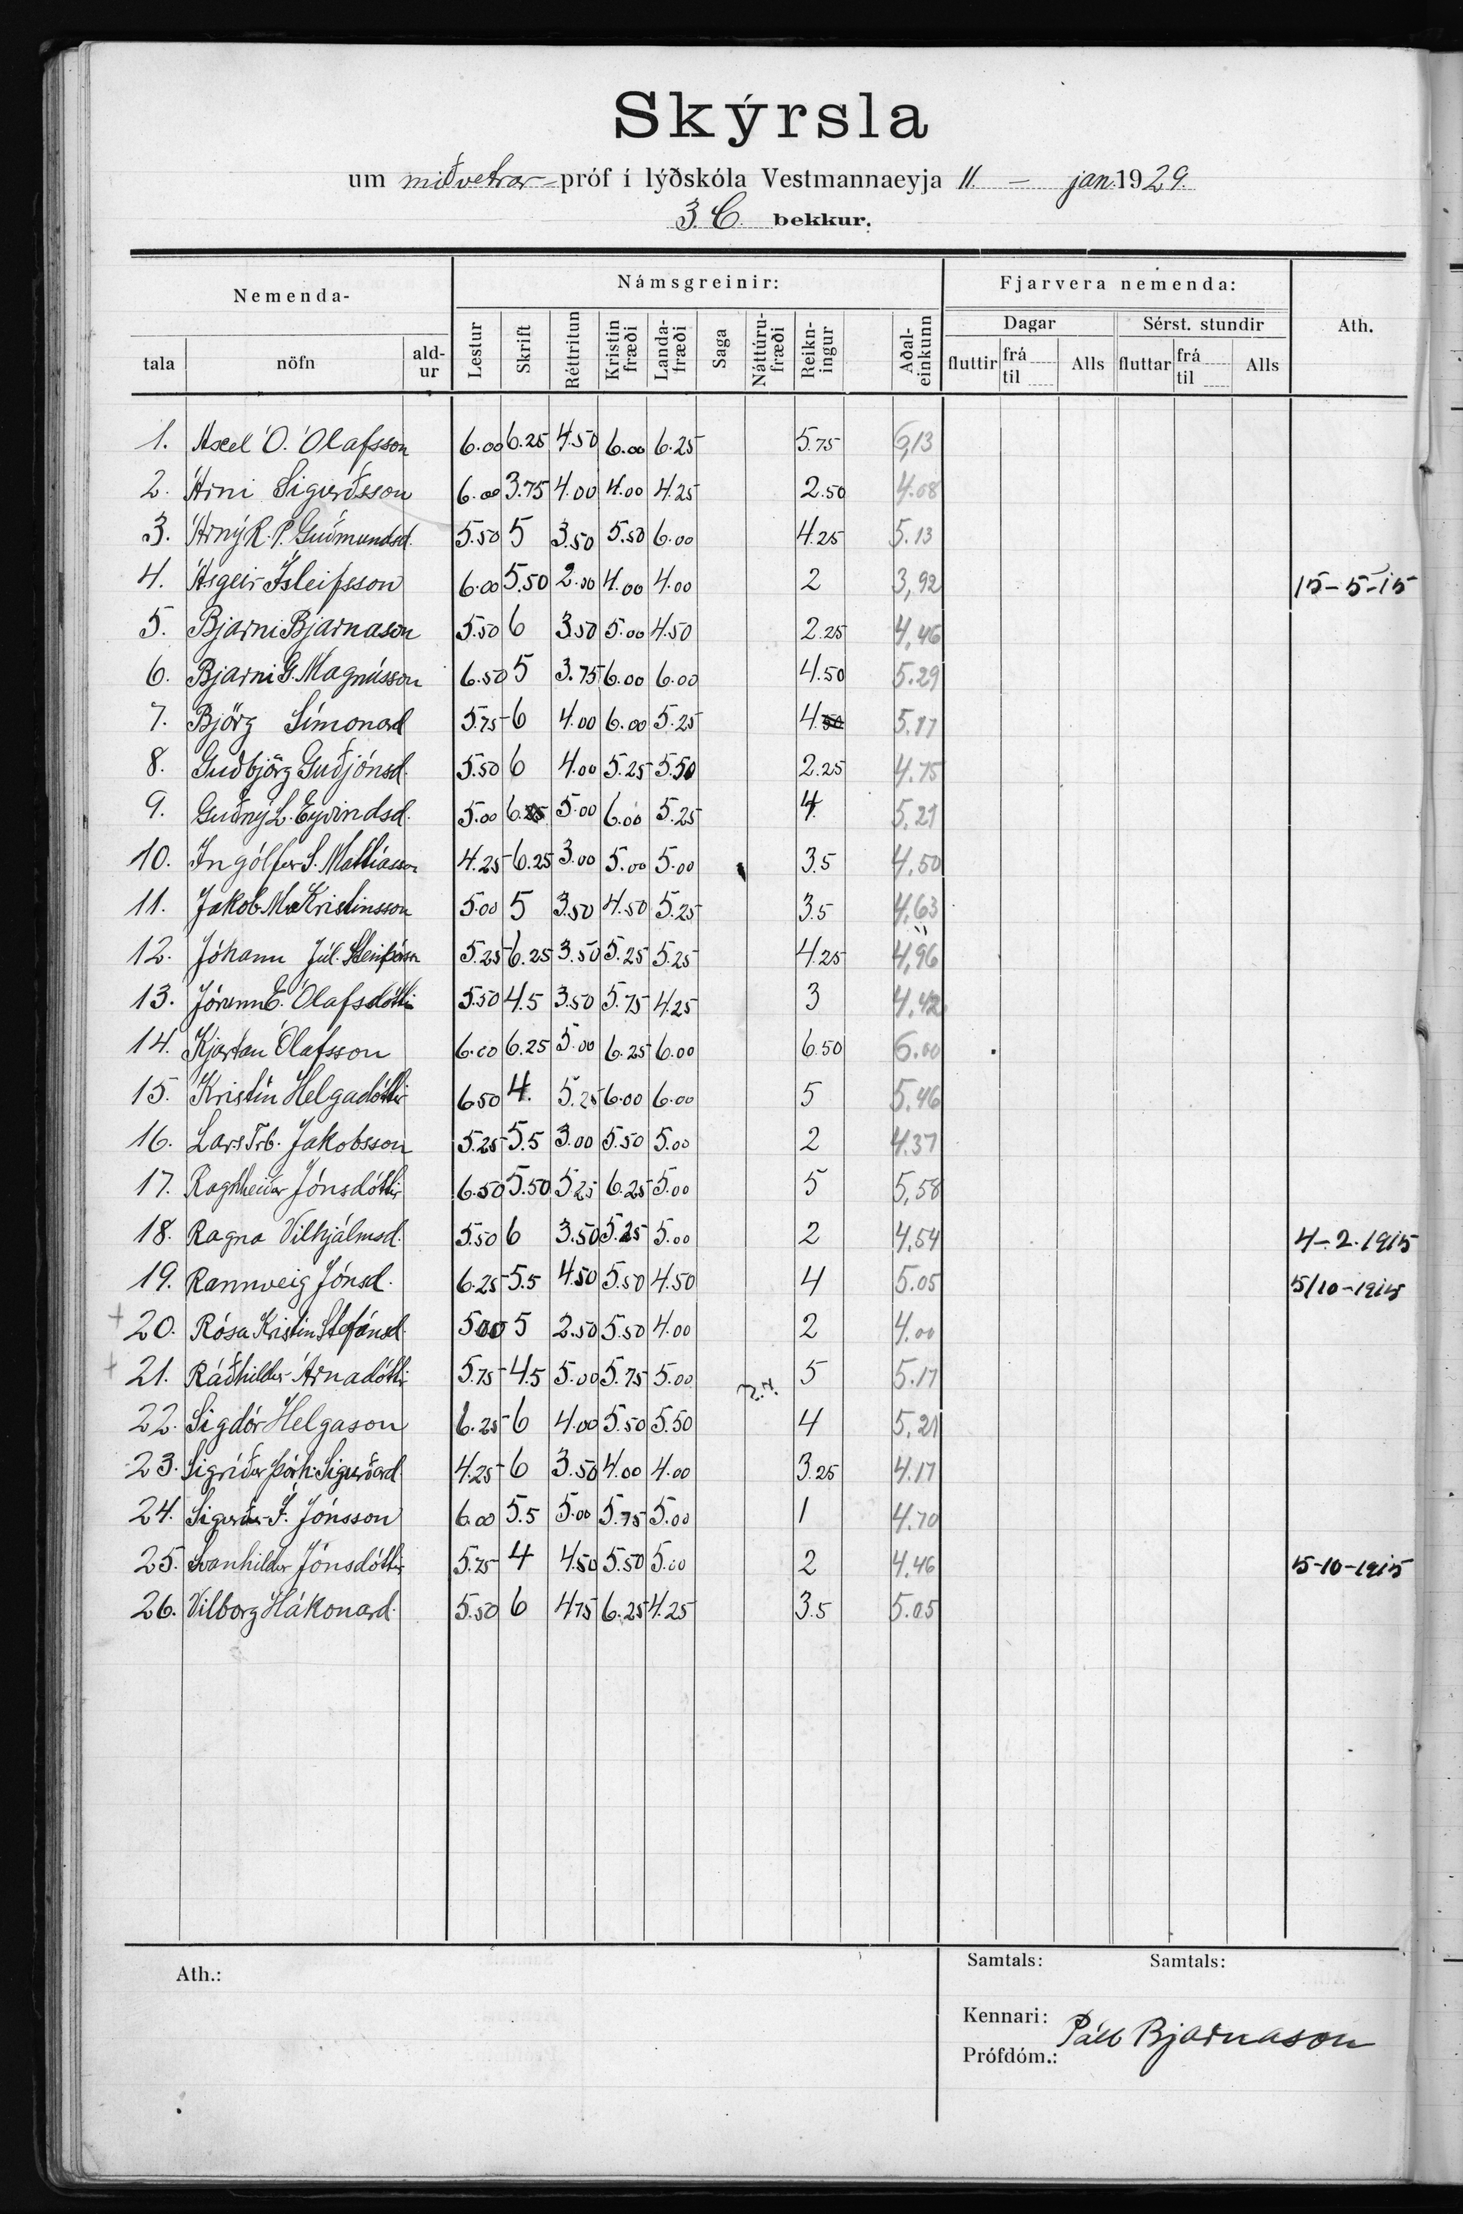 Skýrsla
um miðvetrar- próf í lýðskóla Vestmannaeyja 11. – jan. 1929.
3. C. bekkur.
Nemenda- Námsgreinir: Fjarvera nemenda: Ath.
Dagar Sérst. stundir
tala nöfn ald-ur Lestur Skrift Réttritun Kristin fræði Landa-fræði Saga Náttúru-fræði Reikn-ingur Aðal-einkunn fluttir frá til Alls fluttar frá til Alls
1. Axel Ó. Ólafsson 6.00 6.25 4.50 6.00 6.25 5.75 6,13
2. Árni Sigurðsson 6.00 3.75 4.00 4.00 4.25 2.50 4.08
3. Árný R. P. Guðmundsd. 5.50 5 3.50 5.50 6.00 4.25 5.13
4. Ásgeir Ísleifsson 6.00 5.50 2.00 4.00 4.00 2 3,92 15-5-15
5. Bjarni Bjarnason 5.50 6 3.50 5.00 4.50 2.25 4,46
6. Bjarni G. Magnússon 6.50 5 3.75 6.00 6.00 4.50 5.29
7. Björg Símonard 5.75 6 4.00 6.00 5.25 4.50 5.17
8. Guðbjörg Guðjónsd. 5.50 6 4.00 5.25 5.50 2.25 4.75
9. Guðný L. Eyvindsd. 5.00 6.25 5.00 6.00 5.25 4. 5,21
10. Ingólfur S. Mattíasson 4.25 6.25 3.00 5.00 5.00 3.5 4,50
11. Jakob Kristinsson 5.00 5 3.50 4.50 5.25 3.5 4,63
12. Jóhann Júl. 5.25 6.25 3.50 5.25 5.25 4.25 4,96
13. Jórunn E. Ólafsdóttir 5.50 4.5 3.50 5.75 4.25 3 4,42
14. Kjartan Ólafsson 6.00 6.25 5.00 6.25 6.00 6.50 6.00
15. Kristín Helgadóttir 6.50 4. 5.25 6.00 6.00 5 5.46
16. Lars Trb. Jakobsson 5.25 5.5 3.00 5.50 5.00 2 4.37
17. Ragnheiður Jónsdóttir 6.50 5.50 5.25 6.25 5.00 5 5,58
18. Ragna Vilhjálmsd. 5.50 6 3.50 5.25 5.00 2 4,54 4-2.1915
19. Rannveig Jónsd. 6.25 5.5 4.50 5.50 4.50 4 5.05 5/10-1915
+ 20. Rósa Kristín Stefánsd. 5.00 5 2.50 5.50 4.00 2 4.00
+ 21. Ráðhildur Árnadóttir 5.75 4.5 5.00 5.75 5.00 5 5.17
22. Sigdór Helgason 6.25 6 4.00 5.50 5.50 4 5,21
23. Sigríður Þórh. Sigurðard. 4.25 6 3.50 4.00 4.00 3.25 4.17
24. Sigurður F. Jónsson 6.00 5.5 5.00 5.75 5.00 1 4.70
25. Svanhildur Jónsdóttir 5.75 4 4.50 5.50 5.00 2 4,46 5-10-1915
26. Vilborg Hákonard. 5.50 6 4.75 6.25 4.25 3.5 5.05
Ath.: Samtals: Samtals:
Kennari: Páll Bjarnason
Prófdóm.: